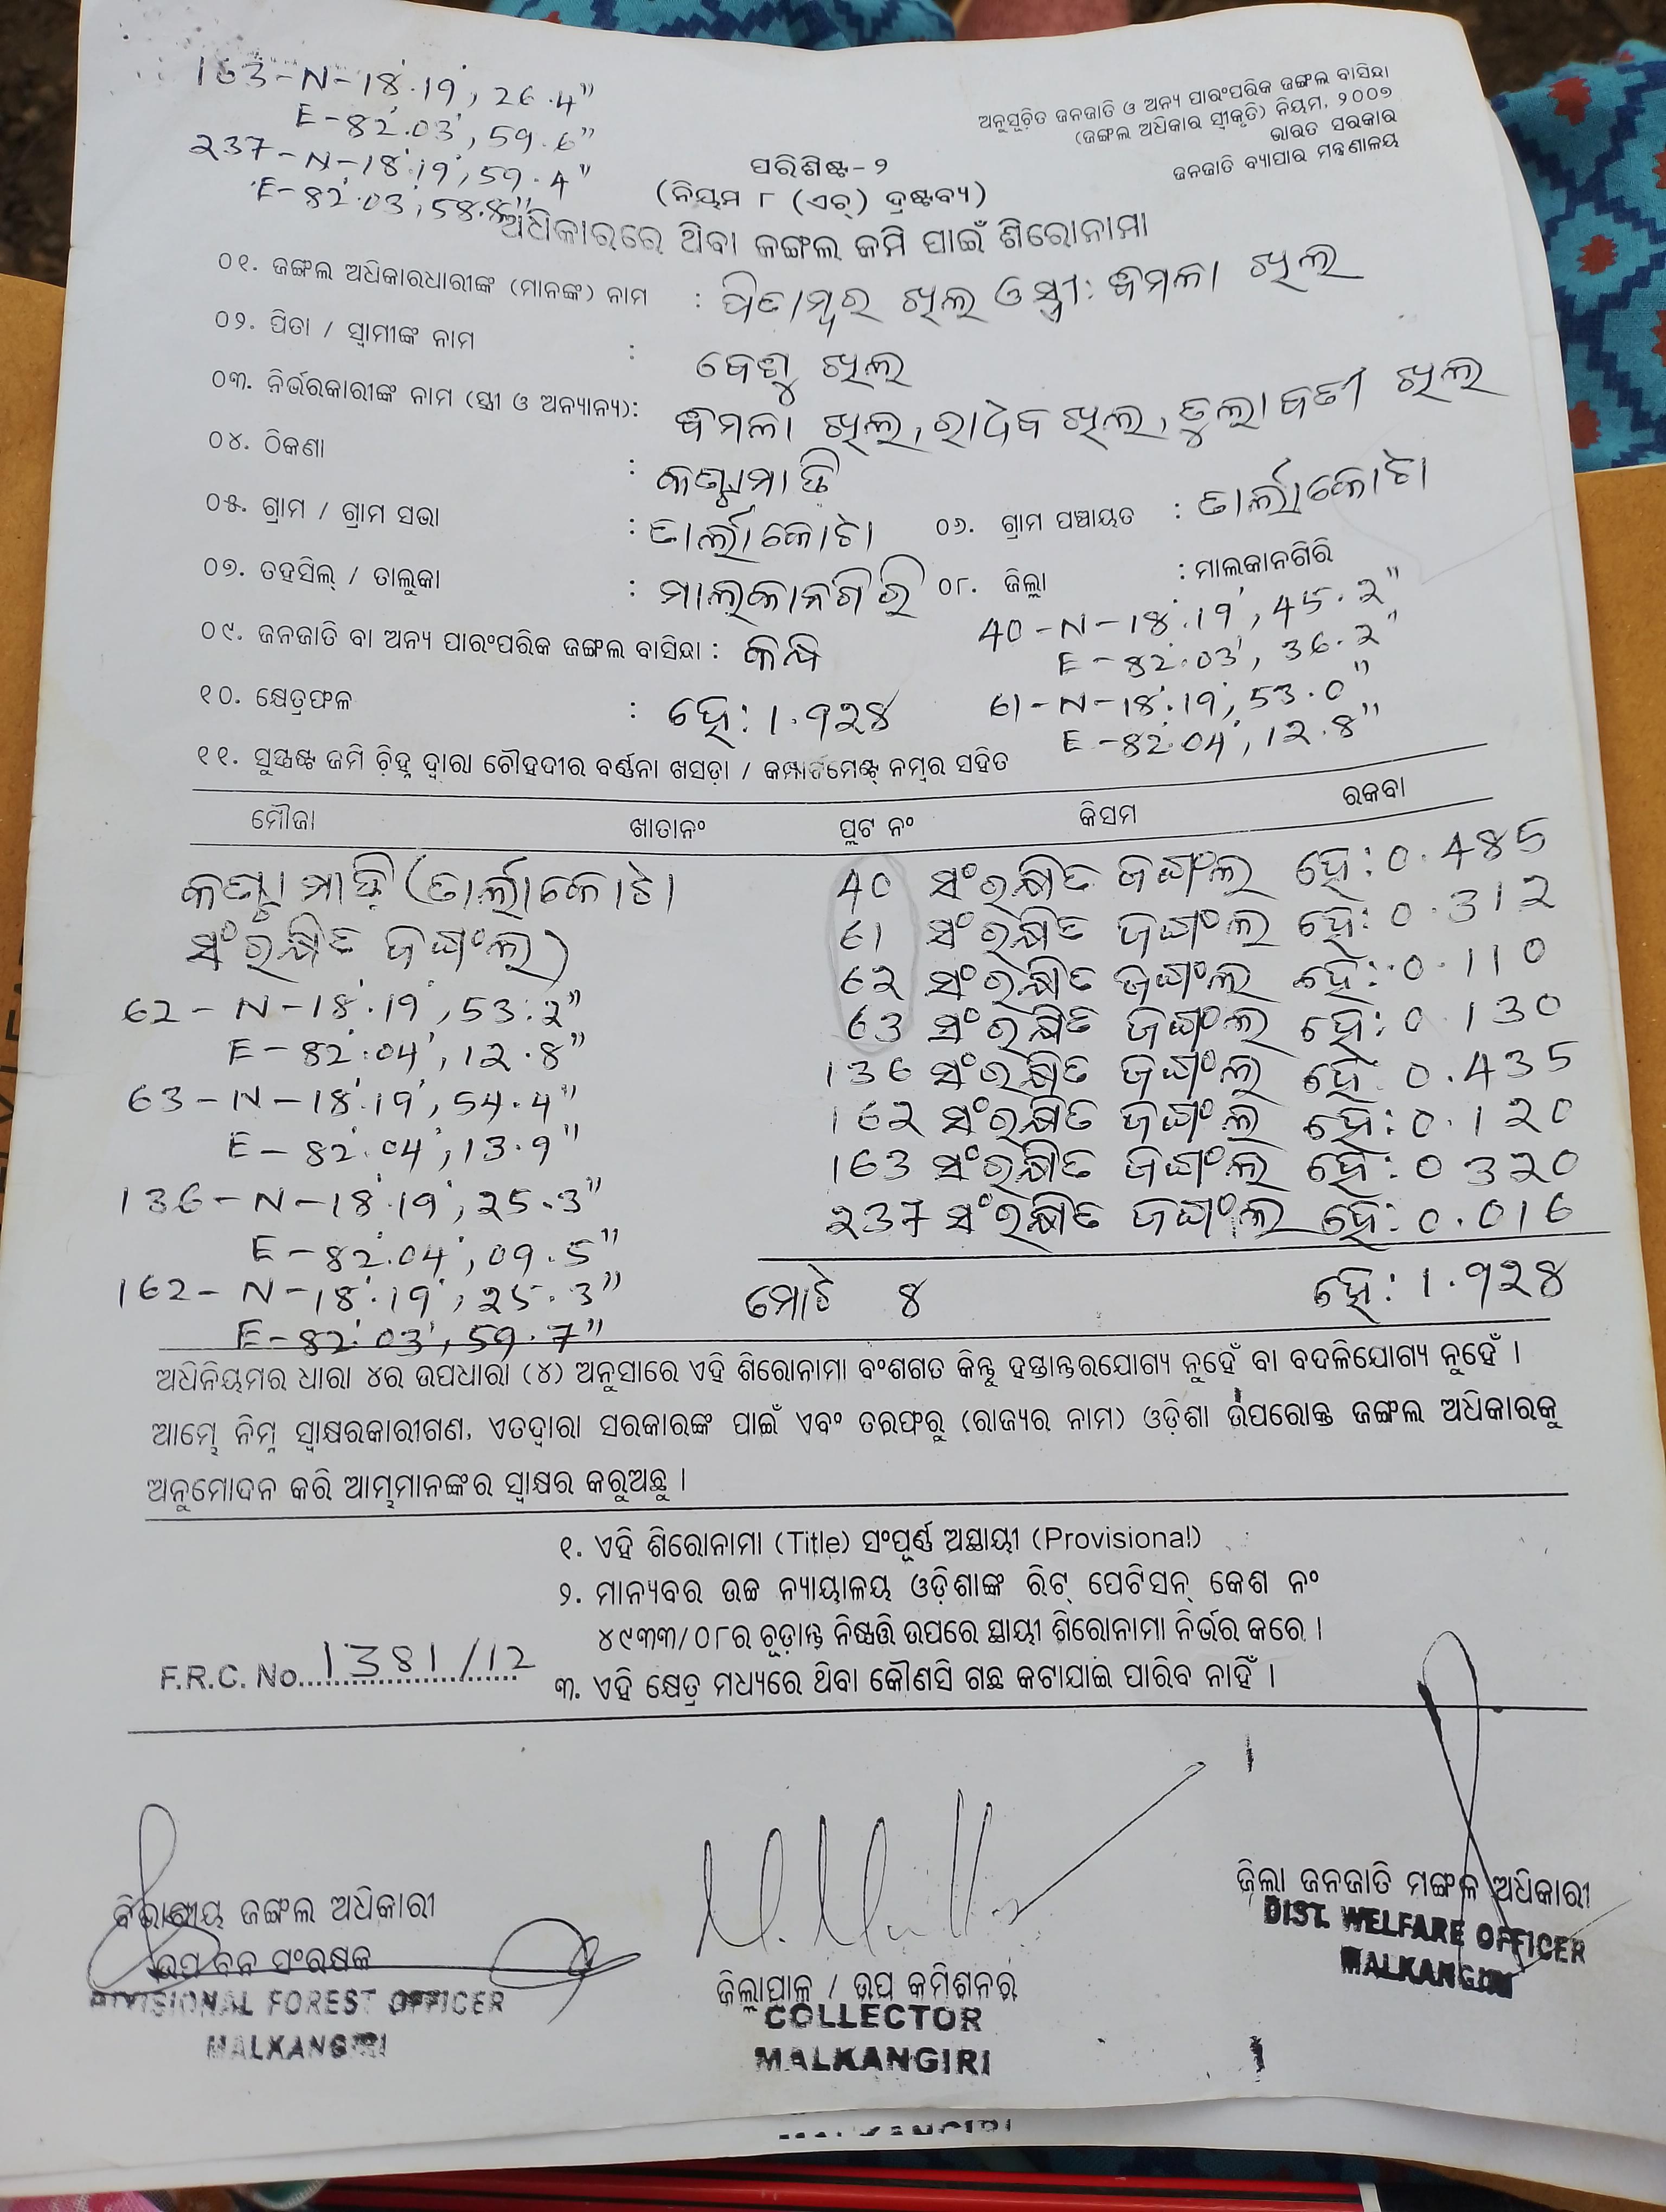 163-N-18°.19', 26.4"
E-82°.03', 59.6"
237-N-18°.19', 59.4"
E-82°.03', 58.8"
ଅନୁସୂଚିତ ଜନଜାତି ଓ ଅନ୍ୟ ପାରଂପରିକ ଜଙ୍ଗଲ ବାସିନ୍ଦା
(ଜଙ୍ଗଲ ଅଧିକାର ସ୍ୱୀକୃତି) ନିୟମ, ୨୦୦୭
ଭାରତ ସରକାର
ଜନଜାତି ବ୍ୟାପାର ମନ୍ତ୍ରଣାଳୟ
ପରିଶିଷ୍ଟ-୨
(ନିୟମ ୮ (ଏଚ୍) ଦ୍ରଷ୍ଟବ୍ୟ)
ଅଧିକାରରେ ଥିବା ଜଙ୍ଗଲ ଜମି ପାଇଁ ଶିରୋନାମା
୦୧. ଜଙ୍ଗଲ ଅଧିକାରଧାରୀଙ୍କ (ମାନଙ୍କ) ନାମ : ପିତାମ୍ବର ଖିଲ ଓ ସ୍ତ୍ରୀ: ବିମଳା ଖିଲ
୦୨. ପିତା / ସ୍ୱାମୀଙ୍କ ନାମ : ଖିଲ
୦୩. ନିର୍ଭରକାରୀଙ୍କ ନାମ (ସ୍ତ୍ରୀ ଓ ଅନ୍ୟାନ୍ୟ): ବିମଳା ଖିଲ, ଖିଲ, ତୁଳାବତୀ ଖିଲ
୦୪. ଠିକଣା :
୦୫. ଗ୍ରାମ / ଗ୍ରାମ ସଭା : ତାର୍ଲାକୋଟା ୦୬. ଗ୍ରାମ ପଞ୍ଚାୟତ : ତାର୍ଲାକୋଟା
୦୭. ତହସିଲ୍ / ତାଲୁକା : ମାଲ୍କାନଗିରି ୦୮. ଜିଲ୍ଲା : ମାଲକାନଗିରି
40-N-18°.19', 45.2"
E-82°.03', 36.2"
୦୯. ଜନଜାତି ବା ଅନ୍ୟ ପାରଂପରିକ ଜଙ୍ଗଲ ବାସିନ୍ଦା : କନ୍ଧ
61-N-18°.19', 53.0"
E-82°.04', 12.8"
୧୦. କ୍ଷେତ୍ରଫଳ : ହେ: 1.୨୨୪
୧୧. ସୁସ୍ପଷ୍ଟ ଜମି ଚିହ୍ନ ଦ୍ୱାରା ଚୌହଦୀର ବର୍ଣ୍ଣନା ଖସଡ଼ା / କମ୍ପାର୍ଟମେଣ୍ଟ୍ ନମ୍ବର ସହିତ
ମୌଜା ଖାତାନଂ ପ୍ଲଟ ନଂ କିସମ ରକବା
(ତାର୍ଲାକୋଟା 40 ସଂରକ୍ଷିତ ଜଙ୍ଗଲ ହେ: 0.485
ସଂରକ୍ଷିତ ଜଙ୍ଗଲ) 61 ସଂରକ୍ଷିତ ଜଙ୍ଗଲ ହେ: 0.312
62 ସଂରକ୍ଷିତ ଜଙ୍ଗଲ ହେ: 0.110
63 ସଂରକ୍ଷିତ ଜଙ୍ଗଲ ହେ: 0.130
136 ସଂରକ୍ଷିତ ଜଙ୍ଗଲ ହେ: 0.435
162 ସଂରକ୍ଷିତ ଜଙ୍ଗଲ ହେ: 0.120
163 ସଂରକ୍ଷିତ ଜଙ୍ଗଲ ହେ: 0.320
237 ସଂରକ୍ଷିତ ଜଙ୍ଗଲ ହେ: 0.016
62-N-18°.19', 53.2"
E-82°.04', 12.8"
63-N-18°.19', 54.4"
E-82°.04', 13.9"
136-N-18°.19', 25.3"
E-82°.04', 09.5"
162-N-18°.19', 25.3"
E-82°.03', 59.7"
ମୋଟ ୪ ହେ: 1.୨୨୪
ଅଧିନିୟମର ଧାରା ୪ର ଉପଧାରା (୪) ଅନୁସାରେ ଏହି ଶିରୋନାମା ବଂଶଗତ କିନ୍ତୁ ହସ୍ତାନ୍ତରଯୋଗ୍ୟ ନୁହେଁ ବା ବଦଳିଯୋଗ୍ୟ ନୁହେଁ ।
ଆମ୍ଭେ ନିମ୍ନ ସ୍ୱାକ୍ଷରକାରୀଗଣ, ଏତଦ୍ୱାରା ସରକାରଙ୍କ ପାଇଁ ଏବଂ ତରଫରୁ (ରାଜ୍ୟର ନାମ) ଓଡ଼ିଶା ଉପରୋକ୍ତ ଜଙ୍ଗଲ ଅଧିକାରକୁ
ଅନୁମୋଦନ କରି ଆମ୍ଭମାନଙ୍କର ସ୍ୱାକ୍ଷର କରୁଅଛୁ ।
୧. ଏହି ଶିରୋନାମା (Title) ସଂପୂର୍ଣ୍ଣ ଅସ୍ଥାୟୀ (Provisional)
୨. ମାନ୍ୟବର ଉଚ୍ଚ ନ୍ୟାୟାଳୟ ଓଡ଼ିଶାଙ୍କ ରିଟ୍ ପେଟିସନ୍ କେଶ ନଂ
୪୯୩୩/୦୮ର ଚୂଡ଼ାନ୍ତ ନିଷ୍ପତ୍ତି ଉପରେ ସ୍ଥାୟୀ ଶିରୋନାମା ନିର୍ଭର କରେ ।
F.R.C. No. 1381/12
୩. ଏହି କ୍ଷେତ୍ର ମଧ୍ୟରେ ଥିବା କୌଣସି ଗଛ କଟାଯାଇ ପାରିବ ନାହିଁ ।
ବିଭାଗୀୟ ଜଙ୍ଗଲ ଅଧିକାରୀ
ଉପ ବନ ସଂରକ୍ଷକ
DIVISIONAL FOREST OFFICER
MALKANGIRI
ଜିଲ୍ଲାପାଳ / ଉପ କମିଶନର୍
COLLECTOR
MALKANGIRI
ଜିଲା ଜନଜାତି ମଙ୍ଗଳ ଅଧିକାରୀ
DIST. WELFARE OFFICER
MALKANGIRI
MALKANGIRI